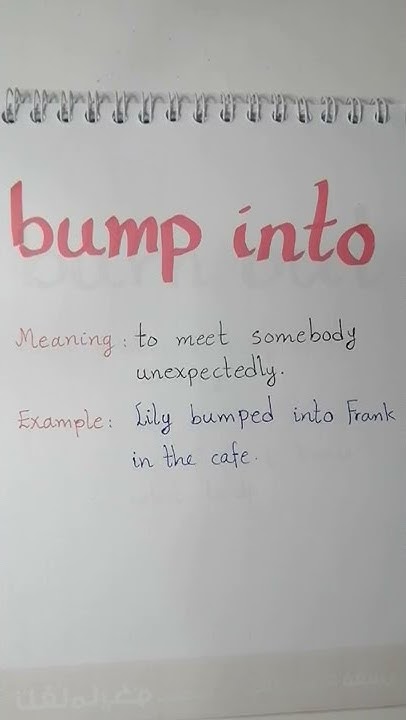 bump into
Meaning: to meet somebody
unexpectedly.
Example: Lily bumped into Frank
in the cafe.